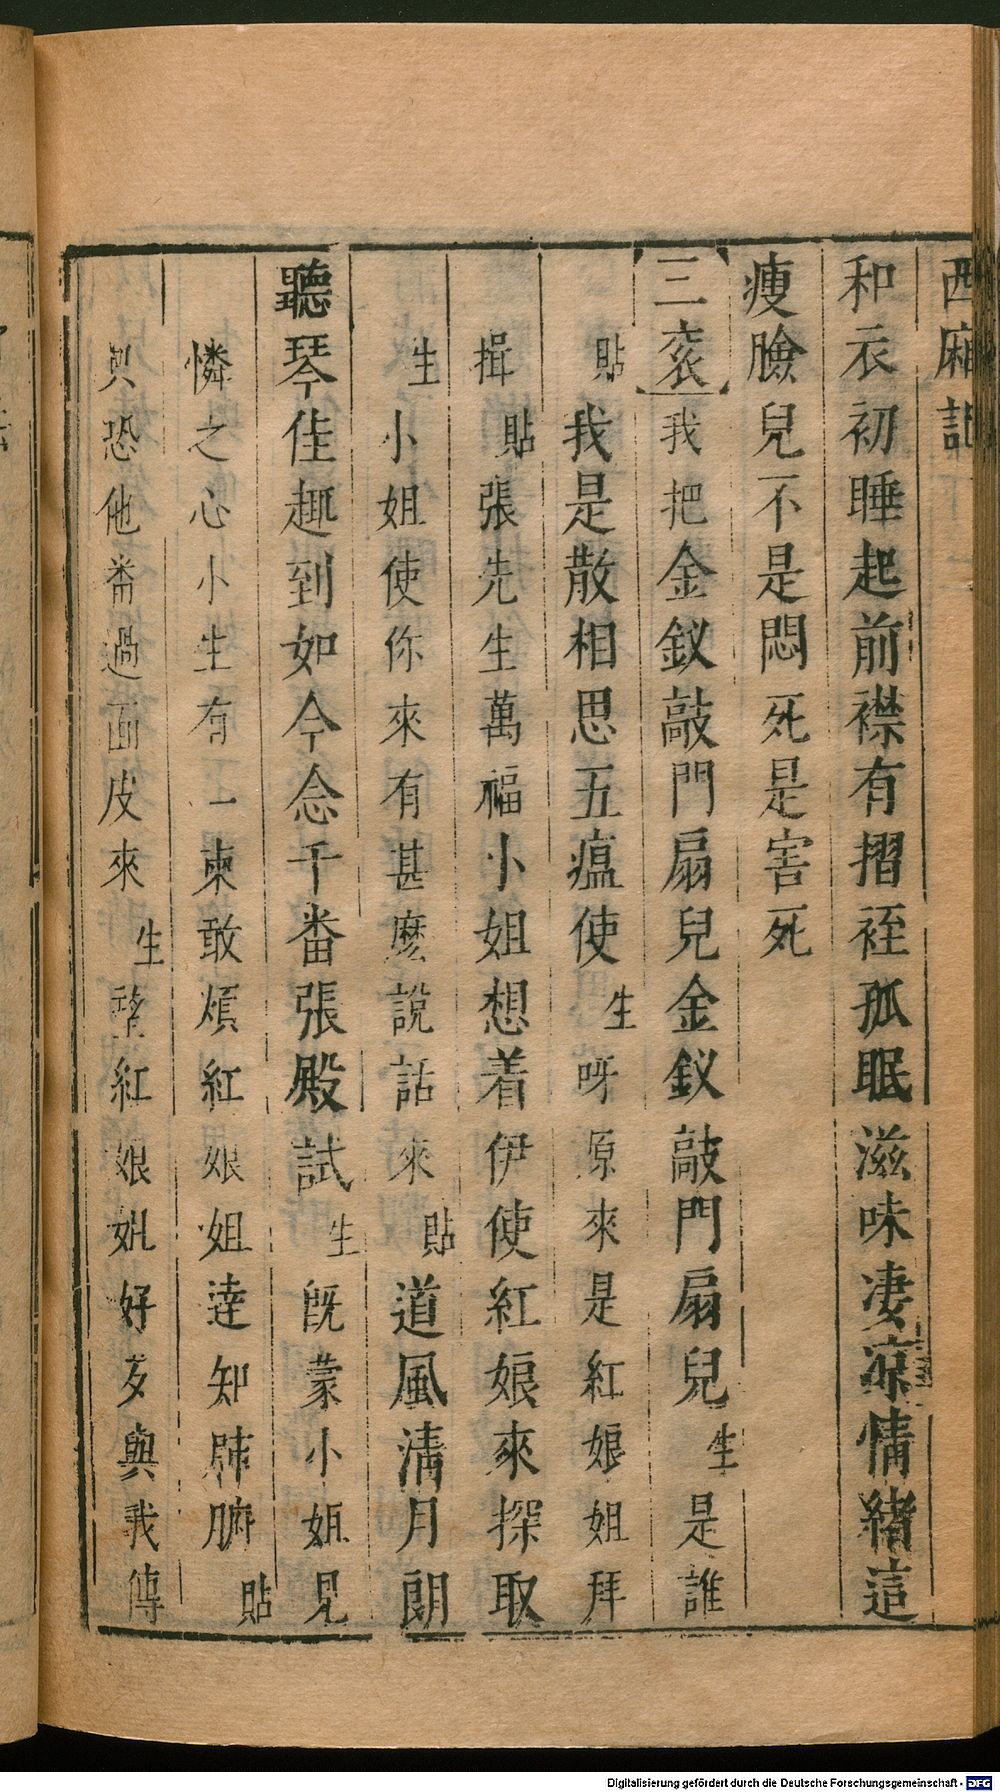 西廂記
和衣初睡起前襟有摺䘭孤眠滋味凄凉情緒這
瘦臉兒不是悶死是害死
三衮我把金釵敲門扇兒金釵敲門扇兒生是誰
貼我是散相思五瘟使生呀原來是紅娘姐拜
揖貼張先生萬福小姐想着伊使紅娘來探取
生小姐使你來有甚麽說話來貼道風清月朗
聽琴佳趣到如今念千畨張殿試生旣蒙小姐見
憐之心小生有一柬敢煩紅娘姐達知肺腑貼
只恐他畨過面皮來生紅娘姐好歹與我傳
Digitalisierung gefördert durch die Deutsche Forschungsgemeinschaft - DFG